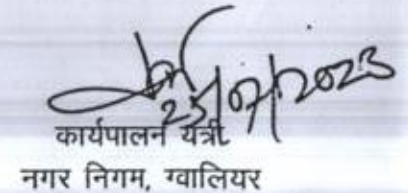 25/07/2023
कार्यपालन यंत्री
नगर निगम, ग्वालियर